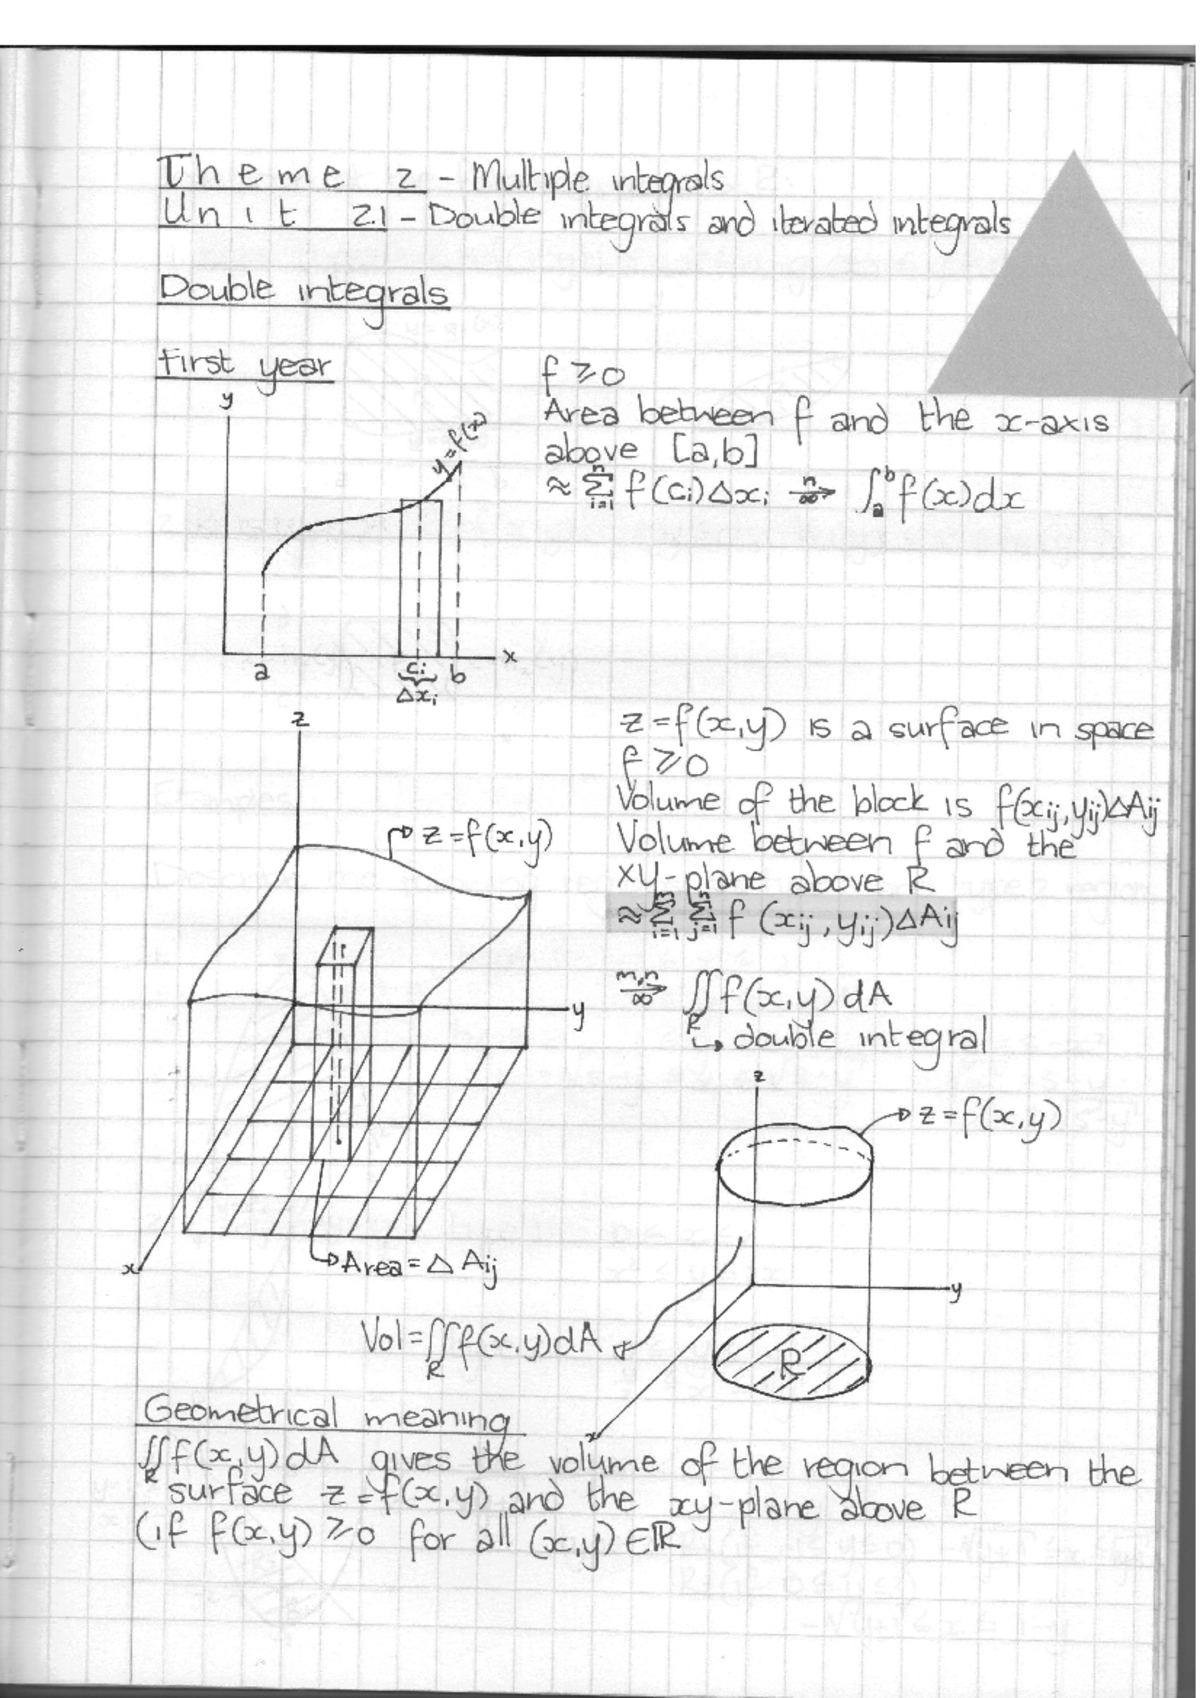 Theme 2 - Multiple integrals
Unit 2.1 - Double integrals and iterated integrals
Double integrals
First year
f ⩾ 0
Area between f and the x-axis
above [a,b]
≈ n∑i=1 f(ci)Δxi n→∞ ∫ab f(x)dx
y
y=f(x)
x
a
ci
b
Δxi
z
z=f(x,y)
y
x
Area = ΔAij
z = f(x,y) is a surface in space
f ⩾ 0
Volume of the block is f(xij,yij)ΔAij
Volume between f and the
xy-plane above R
≈ m∑i=1 n∑j=1 f (xij, yij)ΔAij
m,n→∞ ∬R f(x,y) dA
↳ double integral
z
z=f(x,y)
y
R
x
Vol=∬R f(x,y)dA
Geometrical meaning
∬R f(x,y)dA gives the volume of the region between the
surface z=f(x,y) and the xy-plane above R
(if f(x,y) ⩾ 0 for all (x,y) ∈ℝ